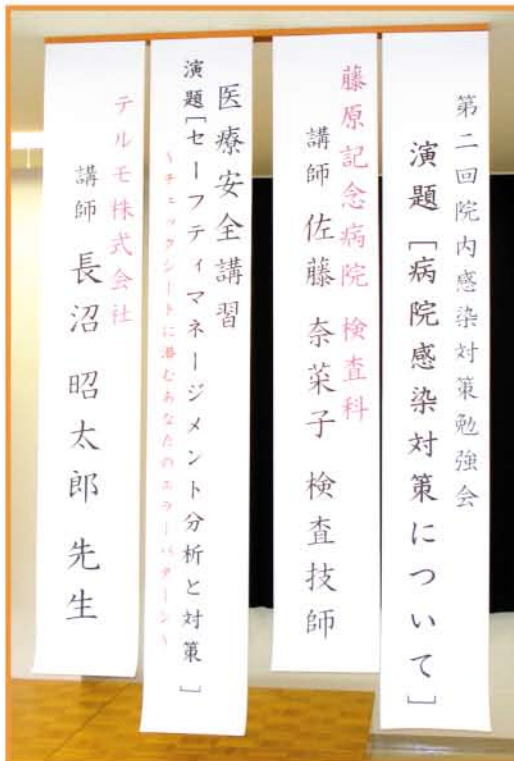 第二回院内感染対策勉強会
演題［病院感染対策について］
藤原記念病院 検査科
講師 佐藤 奈菜子 検査技師
医療安全講習
演題［セーフティマネージメント分析と対策］
～チェックシートに潜むあなたのエラーパターン～
テルモ株式会社
講師 長沼 昭太郎 先生